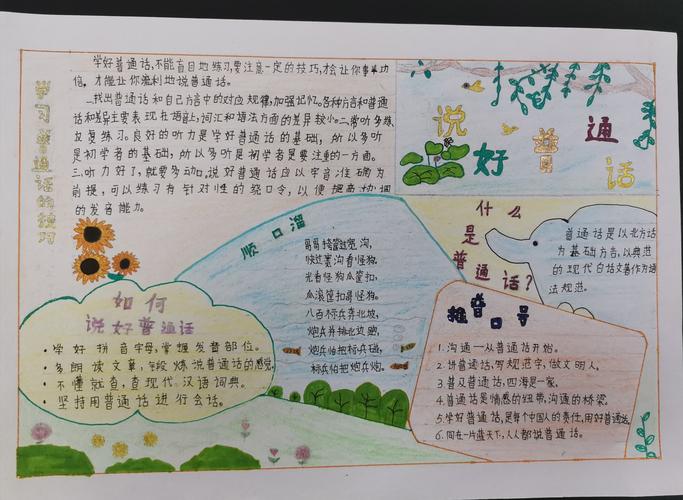 学习普通话的技巧
学好普通话,不能盲目地练习,要注意一定的技巧,才会让你事半功
倍,才能让你流利地说普通话。
一.找出普通话和自己方言中的对应规律,加强记忆。各种方言和普通
话和差异主要表现在语音上,词汇和语法方面的差异较小。二.常听多练,
反复练习。良好的听力是学好普通话的基础,所以多听
是初学者的基础,所以多听是初学者是要注重的一方面。
三.听力好了,就要多动口,说好普通话应以字音准确为
前提,可以练习有针对性的绕口令,以便提高协调
的发音能力。
说好普通话
顺口溜
哥哥挎筐过宽沟,
快过宽沟看怪狗。
光看怪狗瓜筐扣,
瓜滚筐扣哥怪狗。
八百标兵奔北坡,
炮兵并排北边跑,
炮兵怕把标兵碰,
标兵怕把炮兵炮。
什么是普通话?
普通话是以北方话
为基础方言,以典范
的现代白话文著作为语
法规范。
如何
说好普通话
·学好拼音字母,掌握发音部位。
·多朗读文章,练说普通话的感觉
·不懂就查,查现代汉语词典。
·坚持用普通话进行会话。
推普口号
1.沟通—从普通话开始。
2.讲普通话,写规范字,做文明人。
3.普及普通话,四海是一家。
4.普通话是情感的纽带,沟通的桥梁。
5.学好普通话,是每个中国人的责任,用好普通话
6.同在一片蓝天下,人人都说普通话。